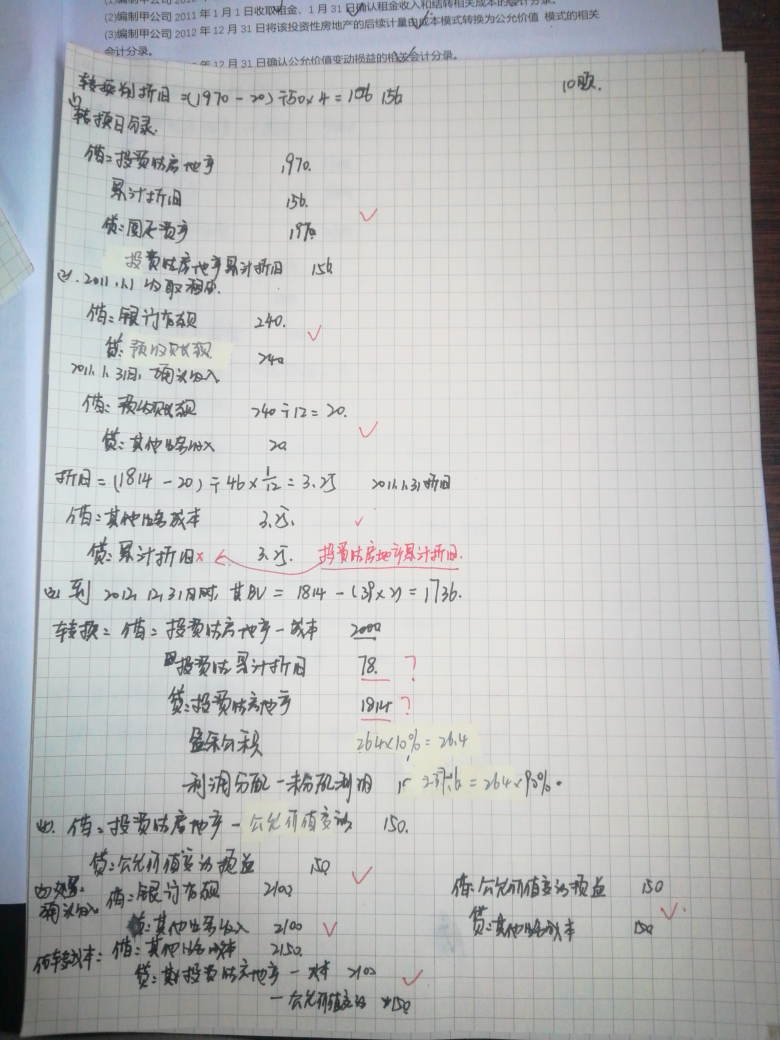 (2)编制甲公司 2011 年 1 月 1 日收取租金、1 月 31 日确认租金收入和结转相关成本的会计分录。
(3)编制甲公司 2012 年 12 月 31 日将该投资性房地产的后续计量由成本模式转换为公允价值 模式的相关
会计分录。
年 12 月 31 日确认公允价值变动损益的相关会计分录。
转换前折旧 =(1970-20)÷50×4=156 156 10题.
(1)
转换日分录.
借:投资性房地产 1970.
累计折旧 156.
贷:固定资产 1970
投资性房地产累计折旧 156
(2). 2011.1.1 收取租金.
借:银行存款 240.
贷:预收账款 240
2011.1.31日,确认收入
借:预收账款 240÷12=20.
贷:其他业务收入 20
折旧=(1814-20)÷46×1/12=3.25 2011.1.31折旧
借:其他业务成本 3.25.
贷:累计折旧× 3.25. 投资性房地产累计折旧.
(3) 到 2012.12.31日时,其BV = 1814-(39×2)=1736.
转换:借:投资性房地产-成本 2000
投资性累计折旧 78. ?
贷:投资性房地产 1814 ?
盈余公积 264×10%=26.4
利润分配-未分配利润 237.6=264×90%.
(4). 借:投资性房地产-公允价值变动 150.
贷:公允价值变动损益 150
(5)处置: 借:银行存款 2100 借:公允价值变动损益 150
确认收入 贷:其他业务收入 2100 贷:其他业务成本 150
结转成本: 借:其他业务成本 2150.
贷:投资性房地产-成本 2100
-公允价值变动 150